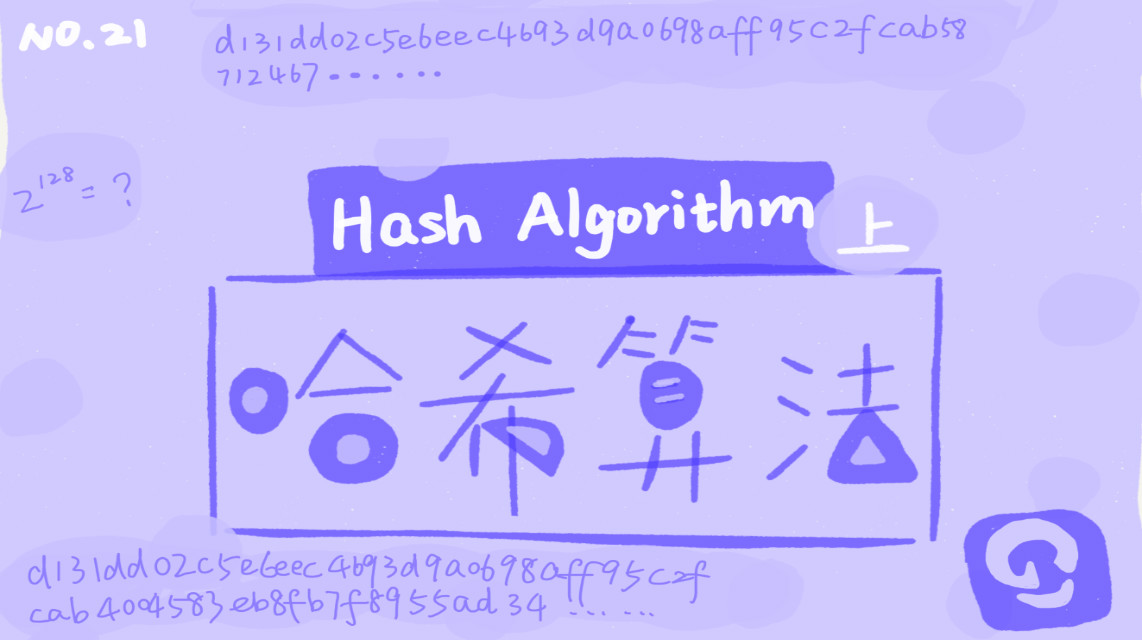 NO.21
d131dd02c5e6eec4693d9a0698aff95c2fcab58
712467......
2^128 = ?
Hash Algorithm 上
哈希算法
d131dd02c5e6eec4693d9a0698aff95c2f
cab4004583eb8fb7f8955ad34 ......